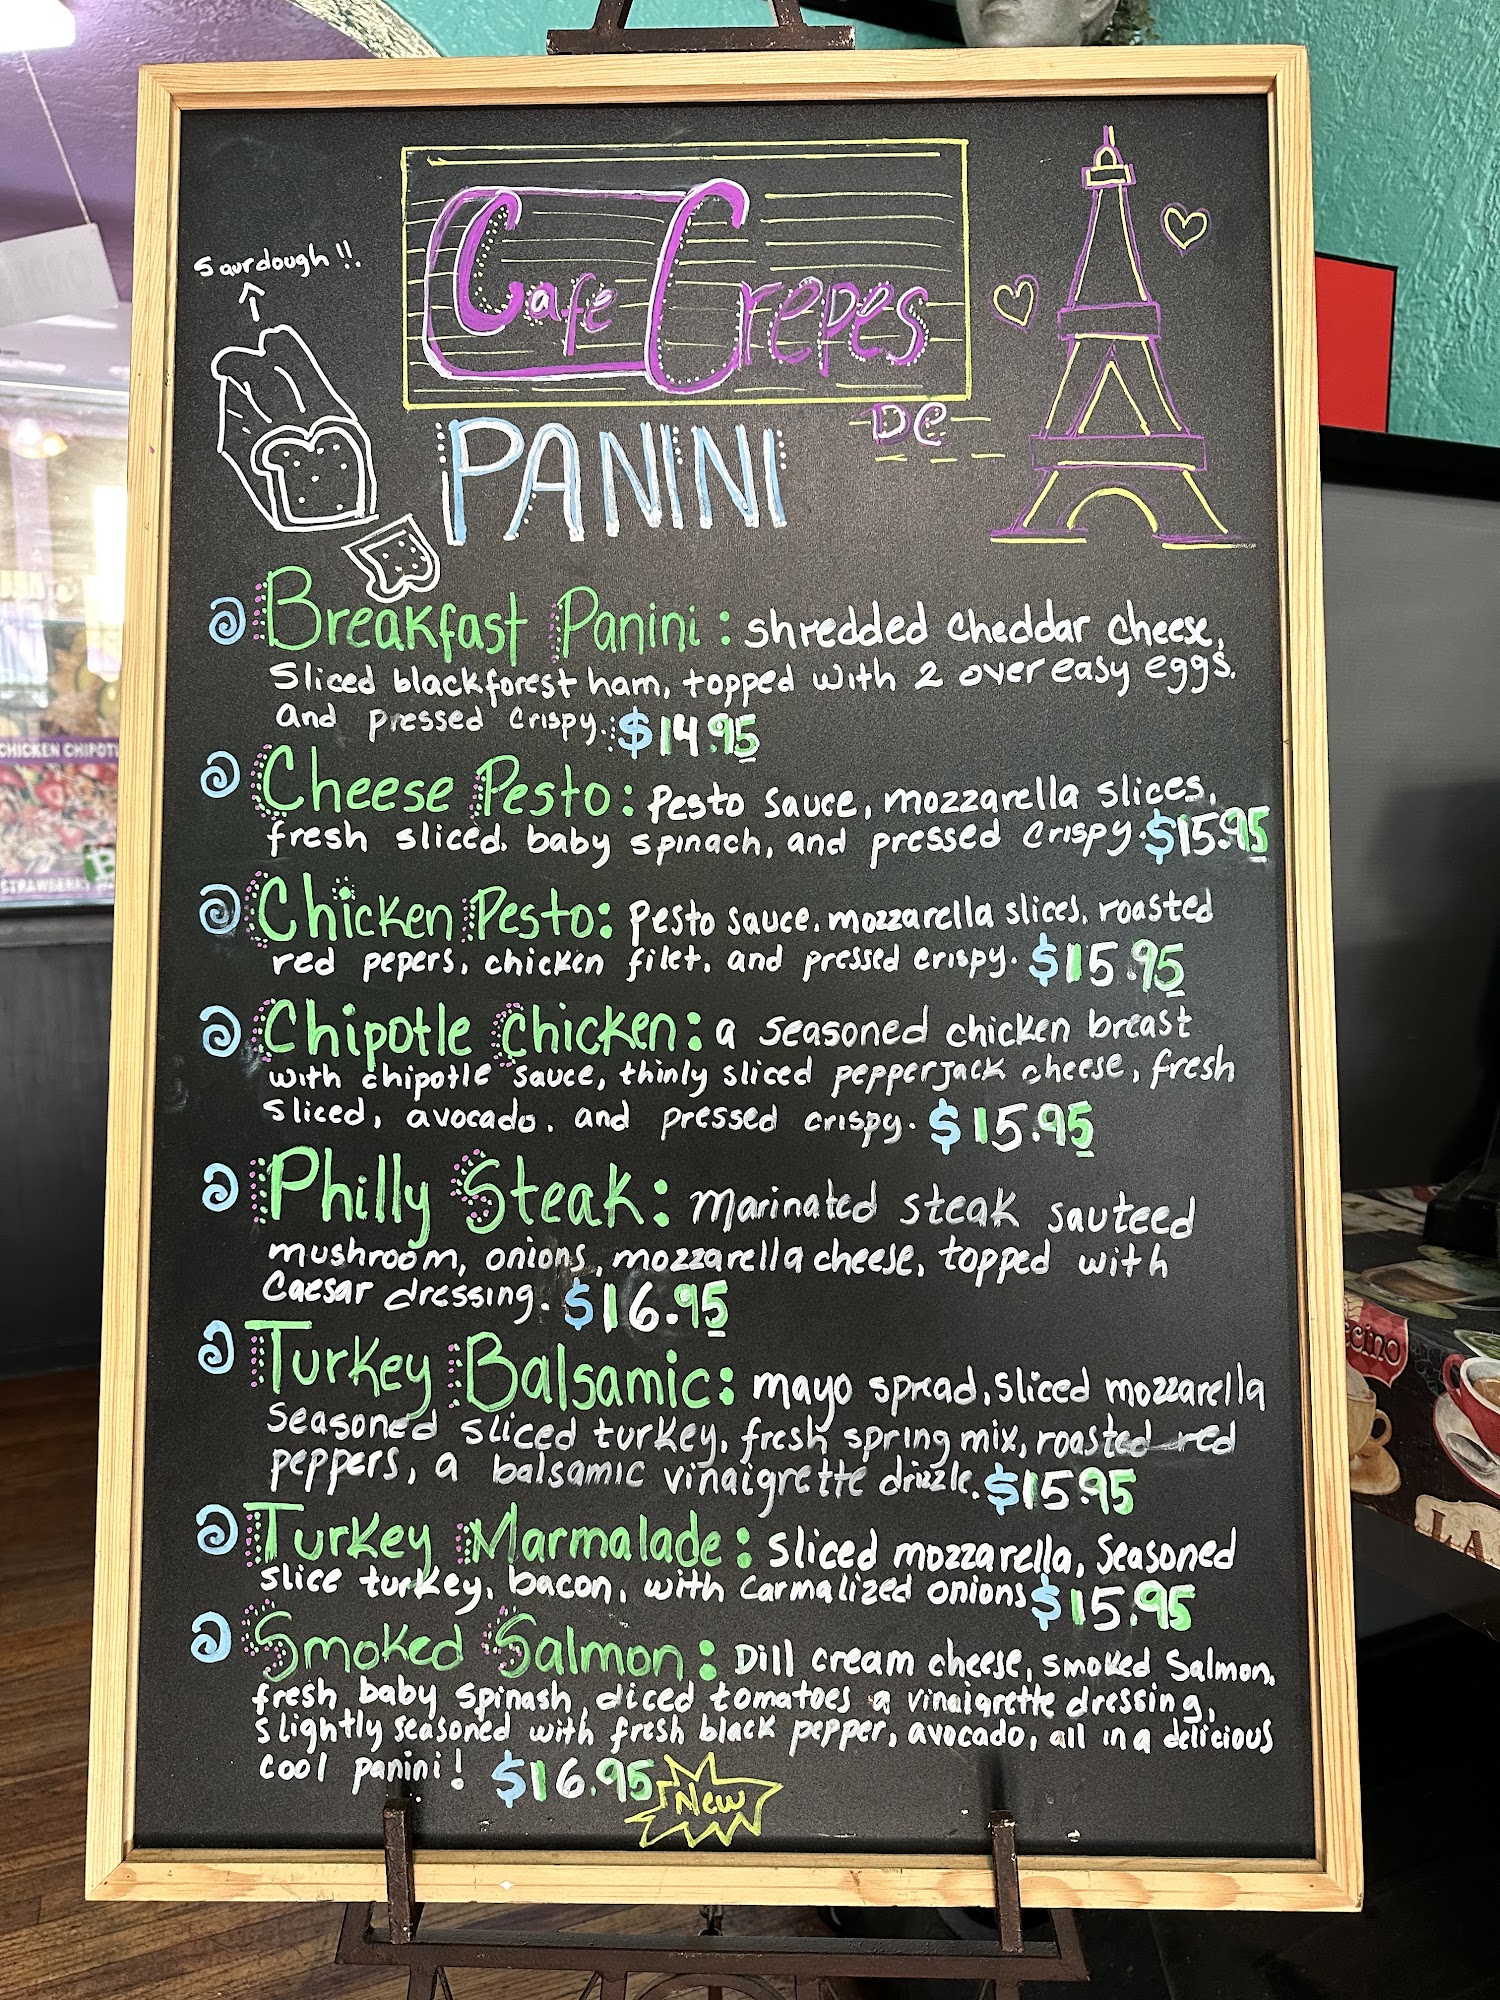 Sourdough!!.
Café Crepes
De
PANINI
Breakfast Panini: shredded cheddar cheese,
Sliced blackforest ham, topped with 2 over easy eggs.
and pressed crispy. $14.95
Cheese Pesto: Pesto Sauce, mozzarella slices,
fresh sliced, baby spinach, and pressed crispy. $15.95
Chicken Pesto: Pesto sauce, mozzarella slices, roasted
red pepers, chicken filet, and pressed crispy. $15.95
Chipotle Chicken: a seasoned chicken breast
with chipotle sauce, thinly sliced pepperjack cheese, fresh
sliced, avocado, and pressed crispy. $15.95
Philly Steak: Marinated steak sauteed
mushroom, onions, mozzarella cheese, topped with
Caesar dressing. $16.95
Turkey Balsamic: mayo spread, sliced mozzarella
seasoned sliced turkey, fresh spring mix, roasted red
peppers, a balsamic vinaigrette drizzle. $15.95
Turkey Marmalade: sliced mozzarella, Seasoned
slice turkey, bacon, with carmalized onions $15.95
Smoked Salmon: Dill cream cheese, smoked Salmon,
fresh baby spinash, diced tomatoes a vinaigrette dressing,
slightly seasoned with fresh black pepper, avocado, all in a delicious
cool panini! $16.95
New
CHICKEN CHIPOTL
STRAWBERR